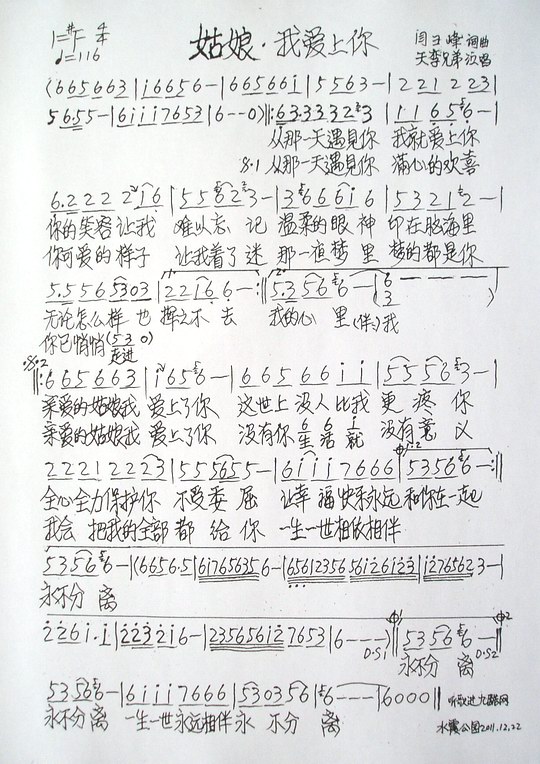 1=#F 4/4
♩=116
姑娘·我爱上你
闫玉峰 词曲
天李兄弟 演唱
(665663|i6656-|66566i|5563-|221223|
5655-|6iii7653|6--0)‖:63·3332 3|1165 6-|
从那一天遇見你 我就爱上你
𝄋·1 从那一天遇見你 满心的欢喜
6·222 2 i6|55623-|3666i6|53212-|
你的笑容让我 难以忘记 温柔的眼神 印在脑海里
你可爱的样子 让我着了迷 那一夜梦里 梦的都是你
5·5565303|22166-:‖5·3566-|
无论怎么样也 挥之不去 我的心里(伴)我
你已悄悄(5 3 0)
走进
𝄋·2
‖:665663|i656-|66566ii|55563-|
亲爱的姑娘我 爱上了你 这世上没人比我更疼你
亲爱的姑娘我 爱上了你 没有你生活就 没有意义
2221 2223|555655-|6iii7666|53566-:‖
全心全力保护你 不受委屈 让幸福快乐永远和你在一起
我会 把我的全部都给你 一生一世相依相伴
53566-|(6656·5|617656356|65612356 5612612 3|12765623-|
永不分离
2261·1|223216-|2356561276 53|6---)‖53566-‖
D·S1
D·S2
永不分 离
53566-|6iii7666|530356|6---|6000‖
永不分离 一生一世永远相伴永 不分 离
听歌进九酷网
水震公图2011.12.22